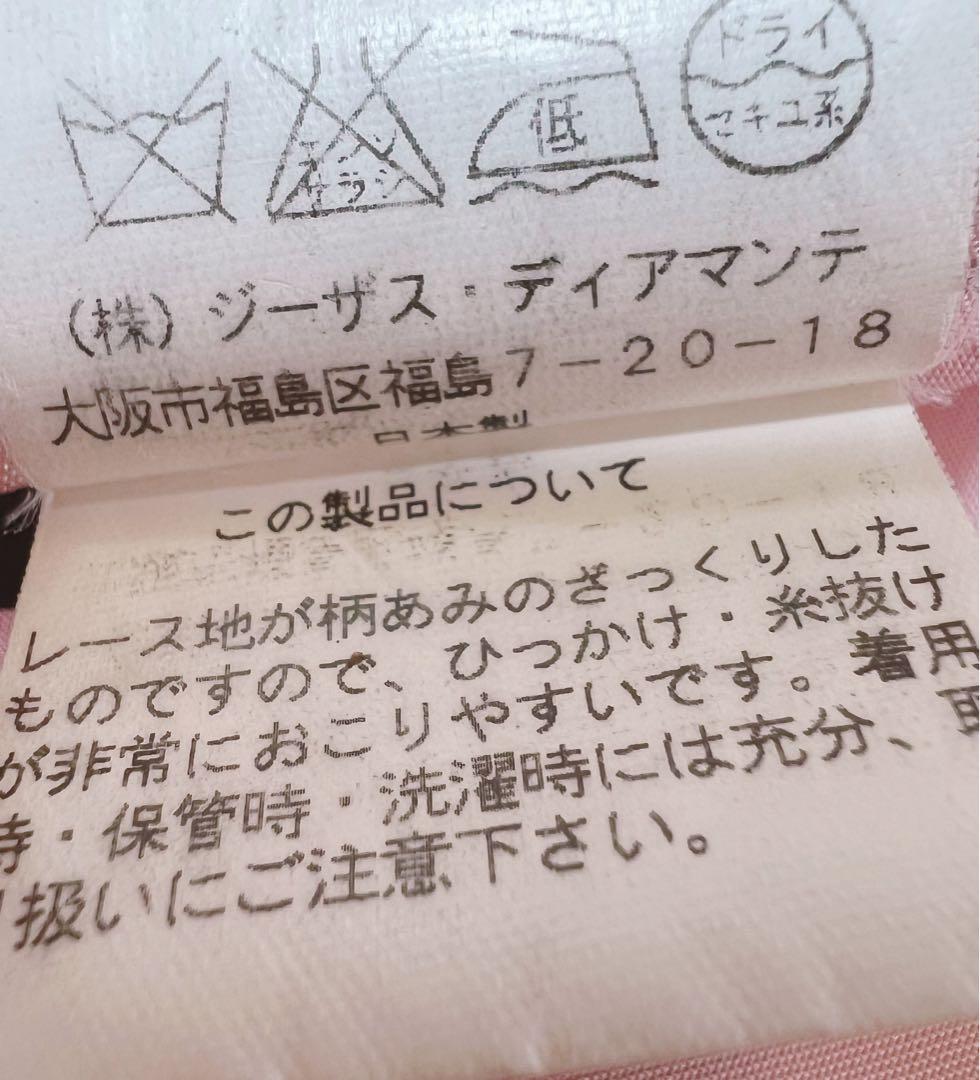 エンソ
サラシ
低
ドライ
セキユ系
(株)ジーザス・ディアマンテ
大阪市福島区福島7-20-18
日本製
この製品について
レース地が柄あみのざっくりした
ものですので、ひっかけ・糸抜け
が非常におこりやすいです。着用
時・保管時・洗濯時には充分、取
り扱いにご注意下さい。